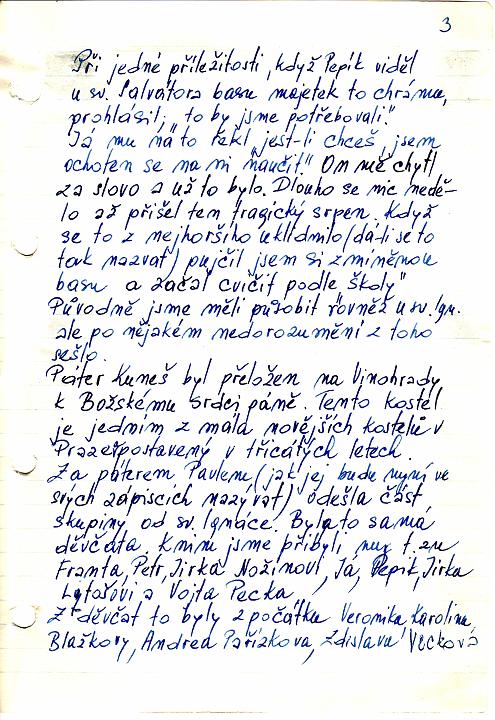 3
Při jedné příležitosti, když Pepík viděl
u sv. Salvátora basu majetek to chrámu,
prohlásil; „to by jsme potřebovali."
Já mu na to řekl „jest-li chceš, jsem
ochoten se na ni naučit." On mě chytl
za slovo a už to bylo. Dlouho se nic nedě-
lo až přišel ten tragický srpen. Když
se to z nejhoršího uklidnilo (dá-li se to
tak nazvat) pujčil jsem si zmíněnou
basu a začal cvičit podle školy"
Původně jsme měli působit rovněž u sv. Ign.
ale po nějakém nedorozumění z toho
sešlo.
Páter Kuneš byl přeložen na Vinohrady
k Božskému srdci páně. Tento kostel
je jedním z mála novějších kostelů v
Praze postavený v třicátých letech.
Za páterem Pavlem (jak jej bude nyní ve
svých zápiscích nazývat) odešla část
skupiny od sv. Ignáce. Byla to samá
děvčata. K nim jsme přibyli my t.zn
Franta, Petr, Jirka Nožinovi, Já, Pepík, Jirka
a Vojta Pecka.
Z děvčat to byly z počátku Veronika Karolina
Blažkovy, Andrea Pařízkova, Zdislava